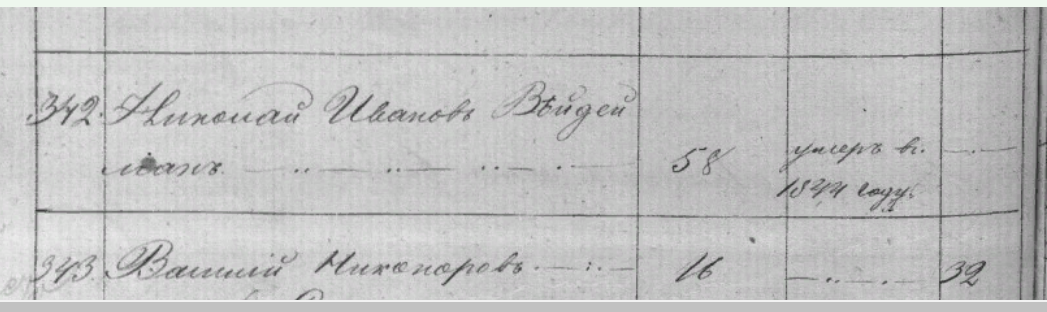 342. Николай Ивановъ Вѣйдей
манъ 58 умеръ въ
1844 году.
343. Василій Никоноровъ 16 32